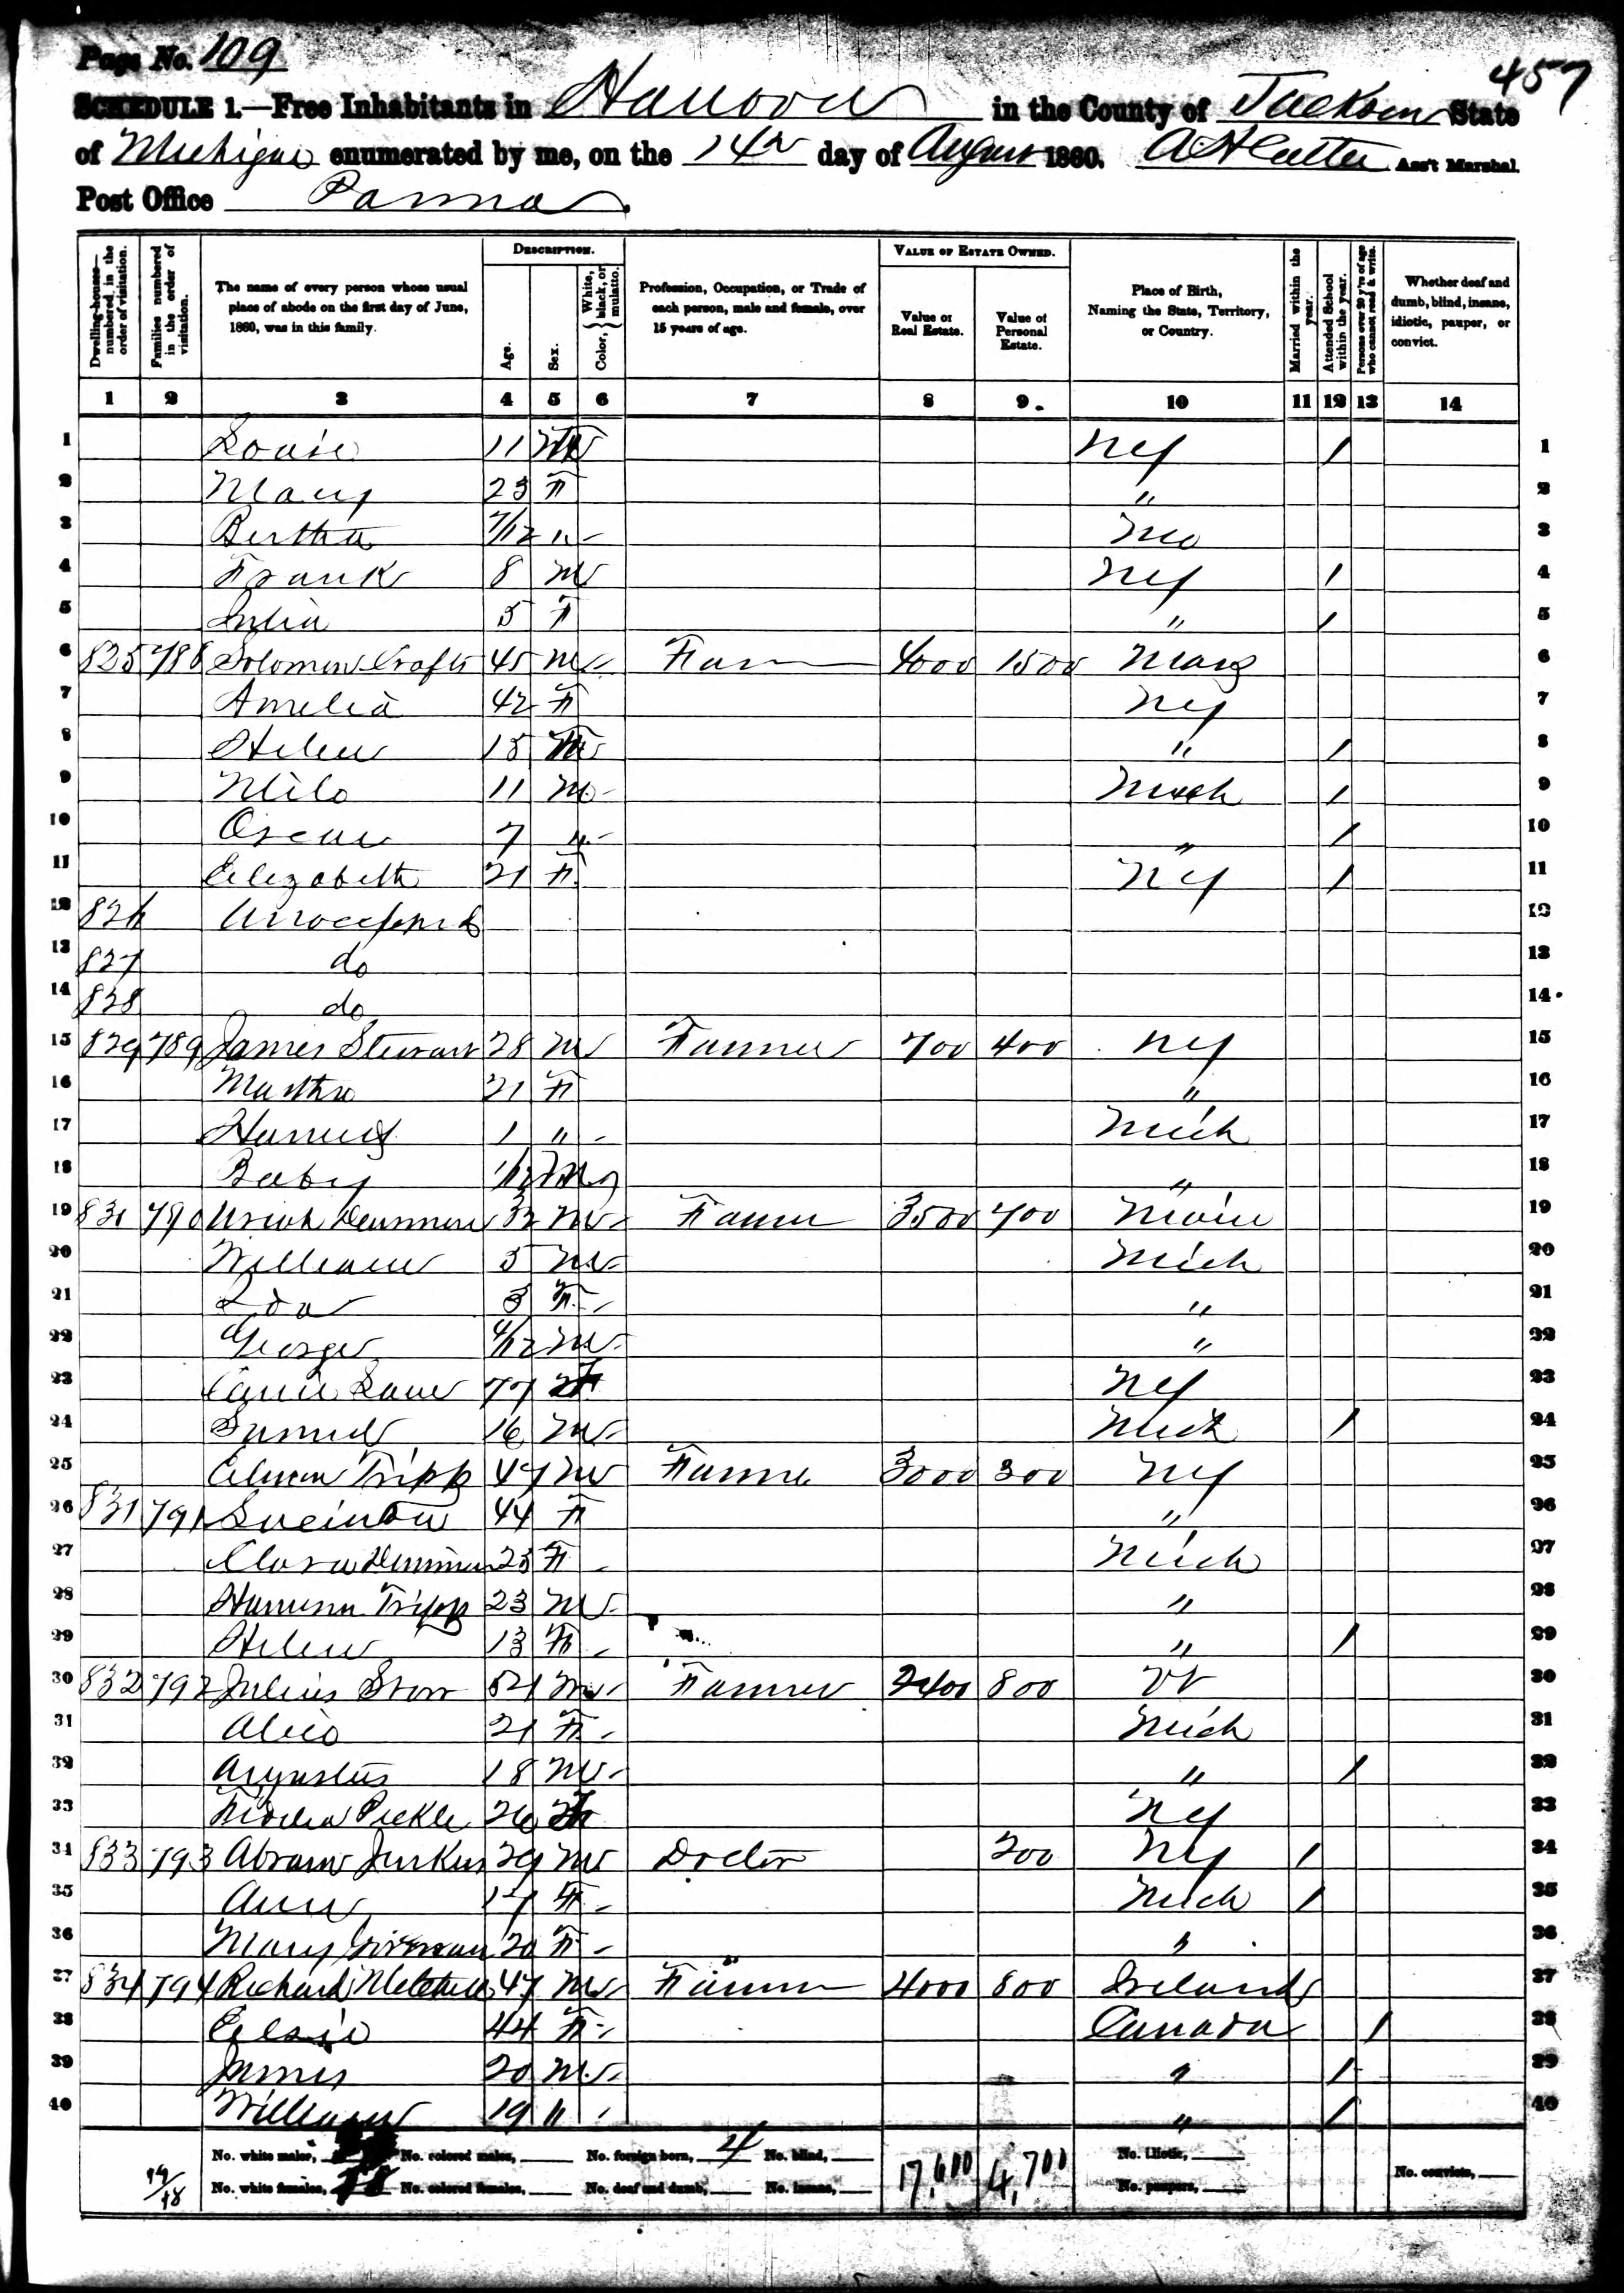 Page No. 109
457
SCHEDULE 1.—Free Inhabitants in Hanover in the County of Jackson State
of Michigan enumerated by me, on the 14th day of August 1860. A H Cutter Ass't Marshal.
Post Office Parma.
Dwelling-houses—numbered in the order of visitation.
Families numbered in the order of visitation.
The name of every person whose usual place of abode on the first day of June, 1860, was in this family.
DESCRIPTION.
Age.
Sex.
Color, White, black, or mulatto.
Profession, Occupation, or Trade of each person, male and female, over 15 years of age.
VALUE OF ESTATE OWNED.
Value of Real Estate.
Value of Personal Estate.
Place of Birth, Naming the State, Territory, or Country.
Married within the year.
Attended School within the year.
Persons over 20 y'rs of age who cannot read & write.
Whether deaf and dumb, blind, insane, idiotic, pauper, or convict.
1 2 3 4 5 6 7 8 9 10 11 12 13 14
1 Louise 11 NY / 1
2 Mary 23 F " 2
3 Bertha 7/12 " - 3
4 Frank 8 M NY / 4
5 Julia 5 F " / 5
6 825 788 Solomon Crafts 45 M Farm 4000 1500 Mass 6
7 Amelia 42 F NY 7
8 Helen 15 " / 8
9 Milo 11 M - Mich / 9
10 Oscar 7 " - " / 10
11 Elizabeth 21 F NY / 11
12 826 Unoccupied 12
13 827 do 13
14 828 do 14
15 829 789 James Stewart 28 M Farmer 700 400 NY 15
16 Martha 21 F " 16
17 1 " - Mich 17
18 Baby 1/12 M " 18
19 830 790 Uriah Densmore 32 M Farmer 3500 700 Maine 19
20 William 5 M - Mich 20
21 Ida 3 F - " 21
22 George 4/12 M - " 22
23 77 F NY 23
24 Samuel 16 M - Mich / 24
25 Tripp 47 M Farmer 3000 300 NY 25
26 831 791 Lucinda 44 F " 26
27 Clara 23 F - Mich 27
28 Harrison Tripp 23 M - " 28
29 Helen 13 F - " / 29
30 832 792 Julius 51 M - Farmer 2400 800 Vt 30
31 Alice 21 F - Mich 31
32 Augustus 18 M - " / 32
33 Pickle 26 F NY 33
34 833 793 Abram 29 M Doctor 200 NY / 34
35 Ann 17 F - Mich / 35
36 Mary 20 F - " 36
37 834 794 Richard Mitchell 47 M - Farmer 4000 800 Ireland 37
38 Elsie 44 F - Canada / 38
39 James 20 M - " / 39
40 William 19 " - " / 40
No. white males, No. colored males, No. foreign born, 4 No. blind, 17,600 4,700 No. idiotic,
19/18 No. white females, 18 No. colored females, No. deaf and dumb, No. insane, No. paupers, No. convicts,